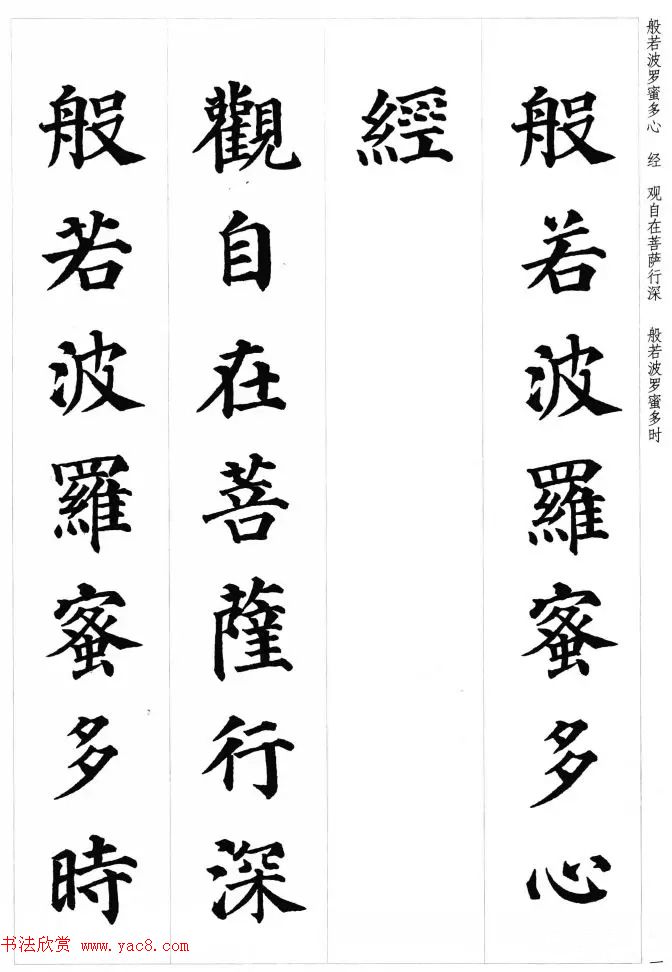 般若波罗蜜多心 经 观自在菩萨行深 般若波罗蜜多时
般若波羅蜜多心
經
觀自在菩薩行深
般若波羅蜜多時
一
书法欣赏 www.yac8.com